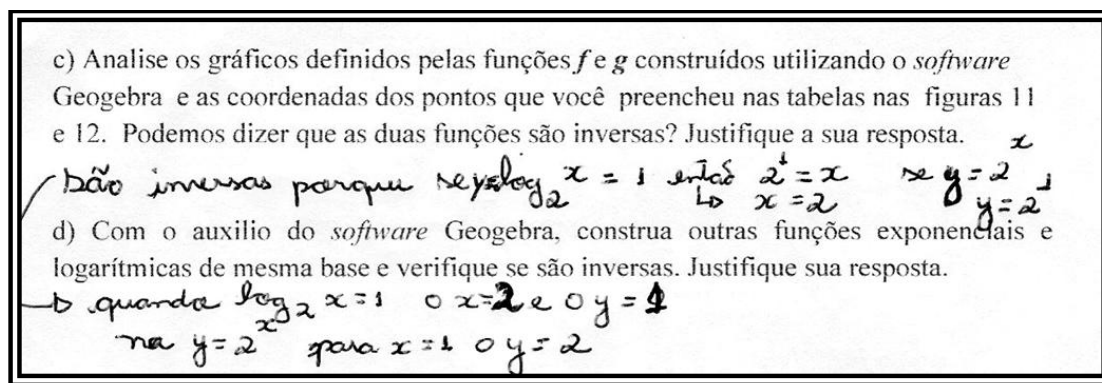 c) Analise os gráficos definidos pelas funções f e g construídos utilizando o software
Geogebra e as coordenadas dos pontos que você preencheu nas tabelas nas figuras 11
e 12. Podemos dizer que as duas funções são inversas? Justifique a sua resposta.
São inversas porque se y=log₂ x = 1 então 2¹ = x se y = 2ˣ
↳ x = 2 y = 2¹
d) Com o auxilio do software Geogebra, construa outras funções exponenciais e
logarítmicas de mesma base e verifique se são inversas. Justifique sua resposta.
↳ quando log₂ x = 1 o x = 2 e o y = 1
na y = 2ˣ para x = 1 o y = 2